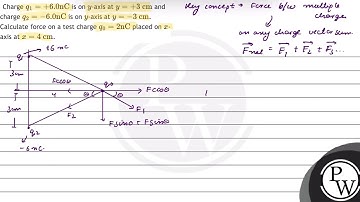 Charge q₁ = +6.0nC is on y-axis at y = +3 cm and
charge q₂ = −6.0nC is on y-axis at y = −3 cm.
Calculate force on a test charge q₀ = 2nC placed on x-
axis at x = 4 cm.
Key concept → Force b/w multiple
charge
on any charge vector sum.
F⃗net = F⃗₁ + F⃗₂ + F⃗₃...
+6 nC
q₁
3cm
Fcosθ
q₀
4
θ
θ
Fcosθ
3cm
F₂
F₁
q₂
Fsinθ + Fsinθ
−6nC
PW